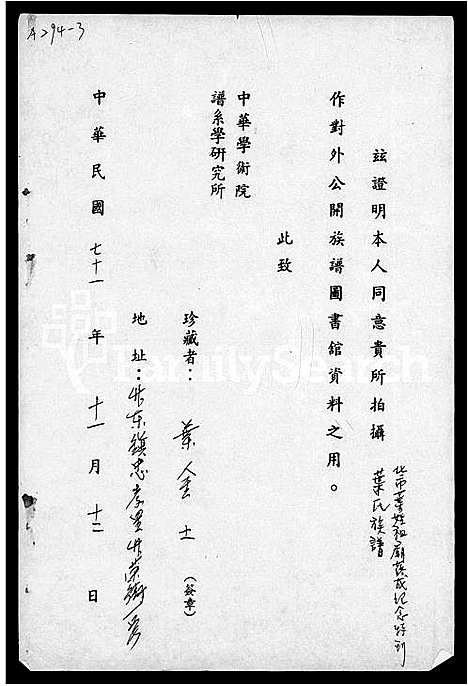 A294-3
茲證明本人同意貴所拍攝 葉氏族譜
北市葉姓祖廟落成紀念特刊
作對外公開族譜圖書館資料之用。
此致
中華學術院
譜系學研究所
珍藏者： 葉金士 （簽章）
地址：竹東鎮忠孝里
中華民國 七十一 年 十一 月 十二 日
FamilySearch